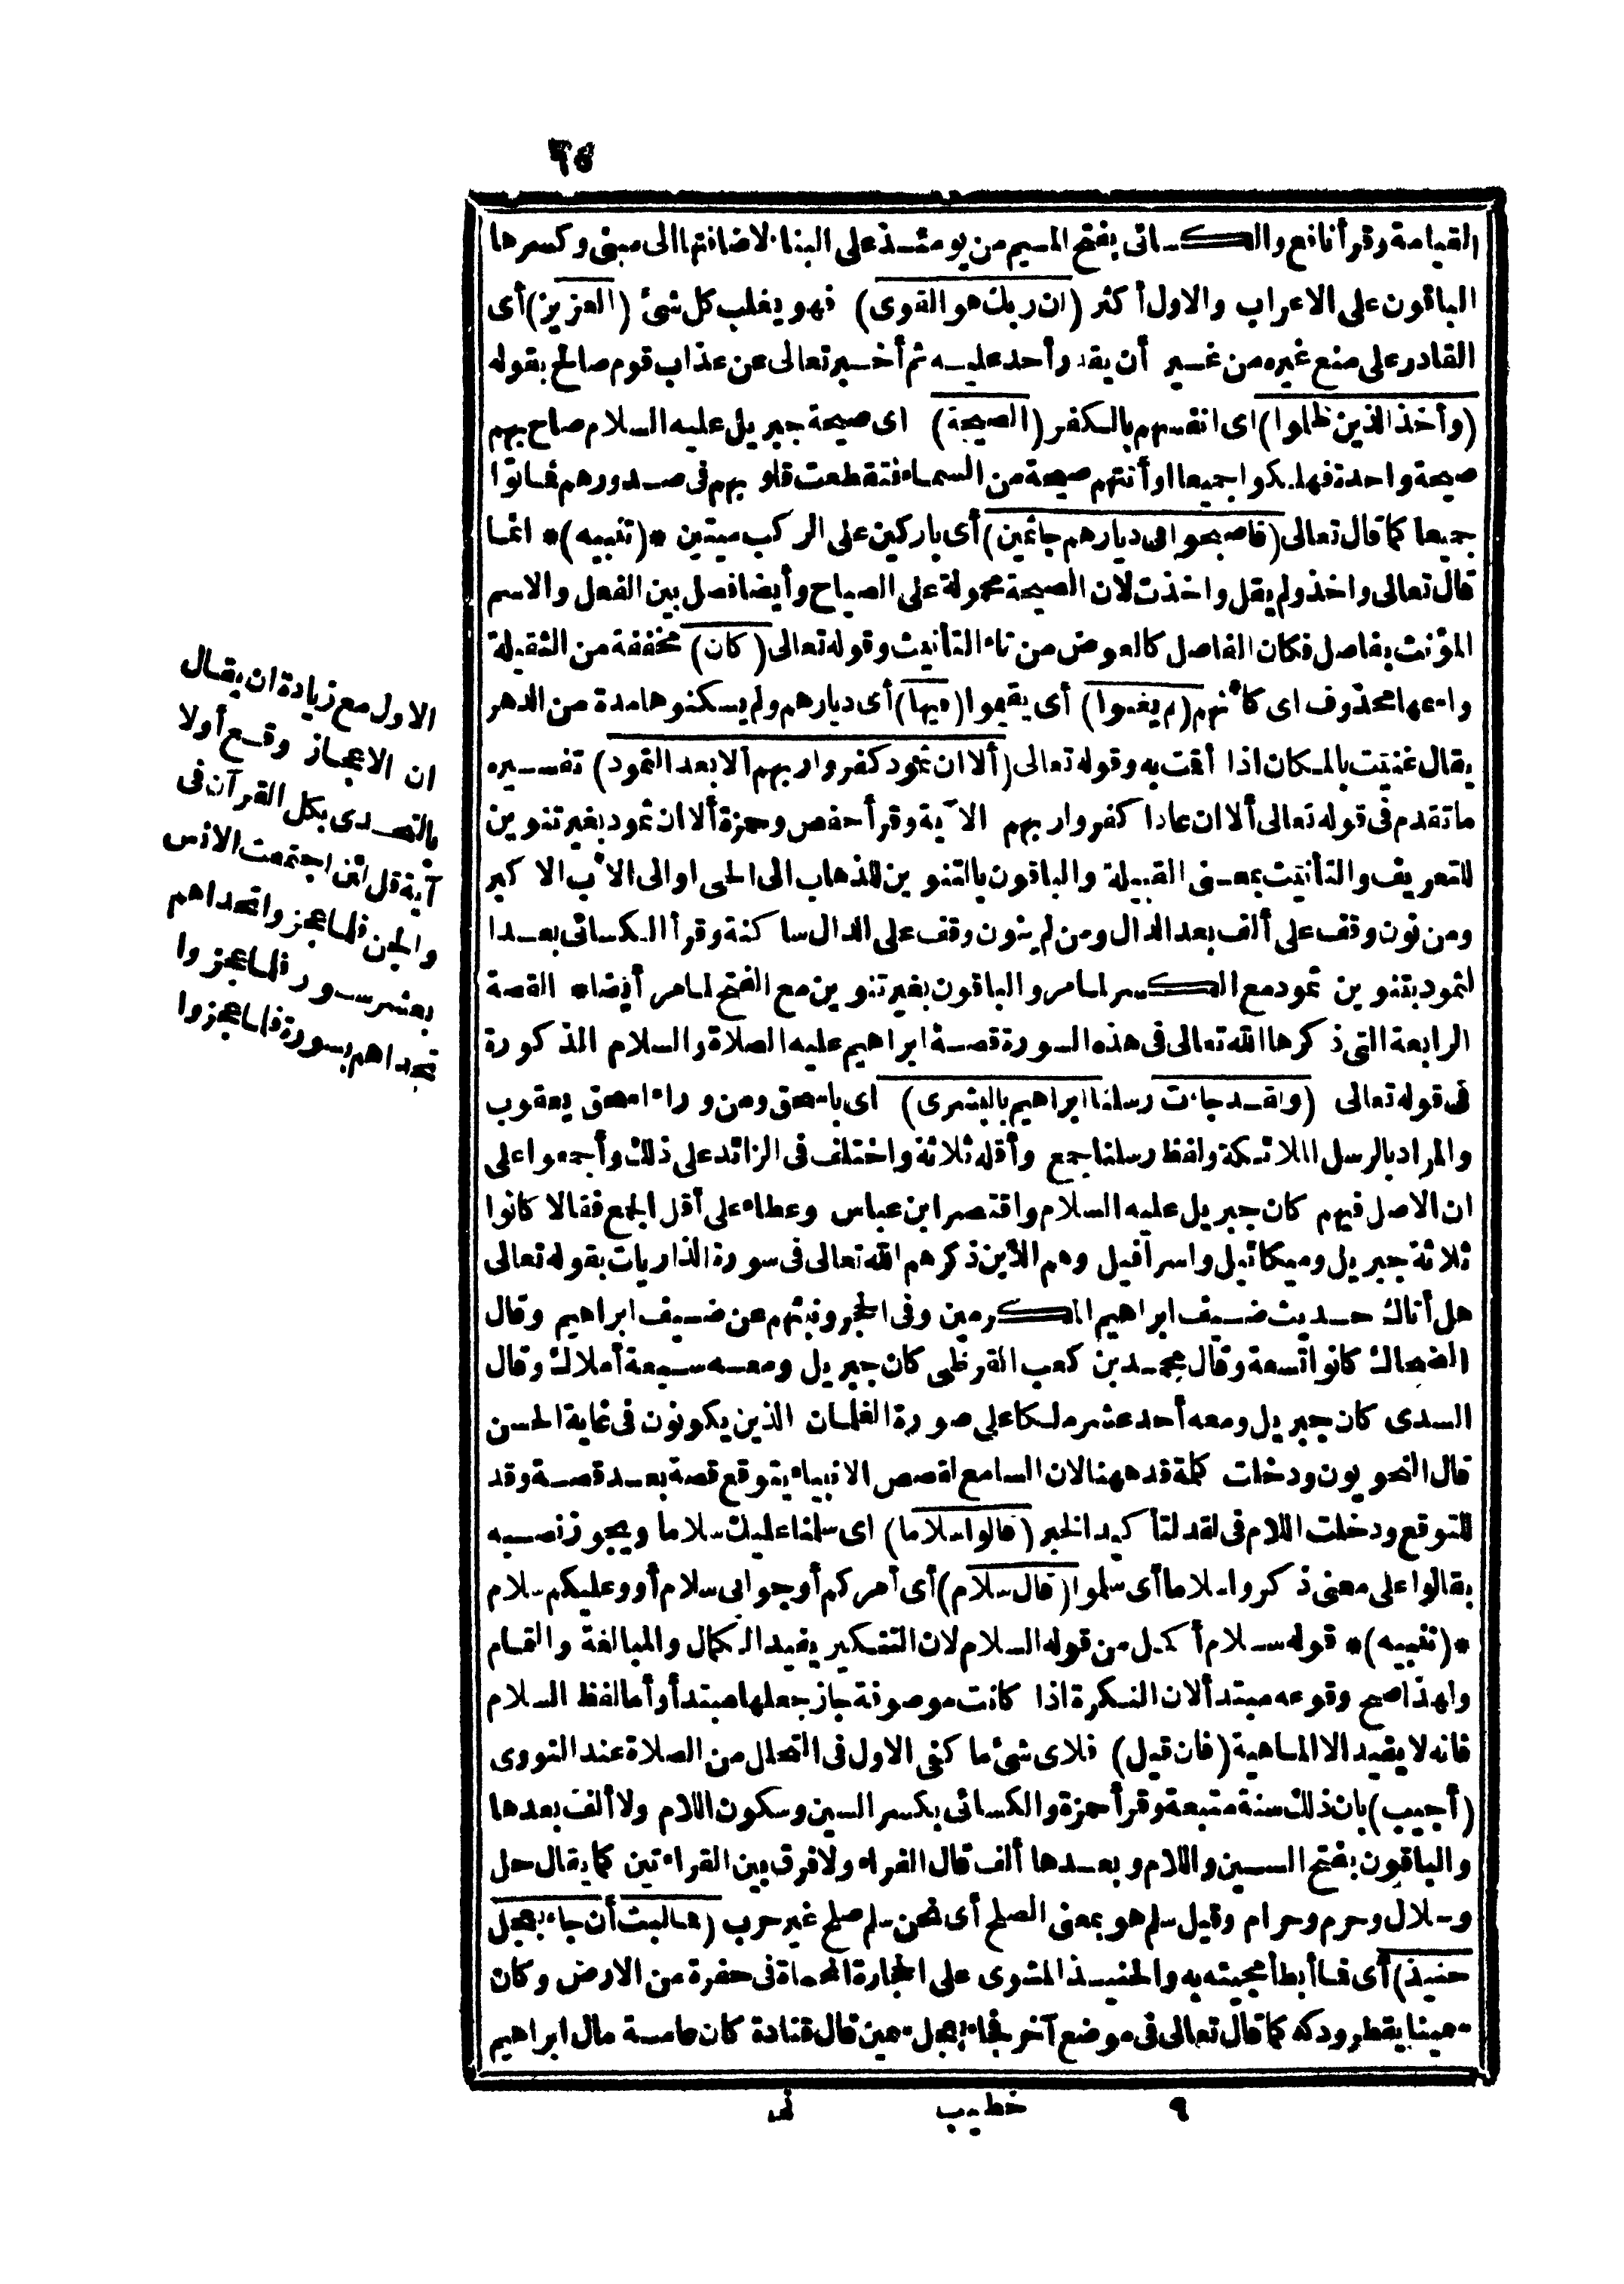 ٦٥
القيامة وقرأ نافع والكسائى بفتح الميم من يومئذ على البناء لاضافتها الى مبنى وكسرها
الباقون على الاعراب والاول أكثر (ان ربك هو القوى) فهو يغلب كل شئ (العزيز) أى
القادر على منع غيره من غير أن يقدر أحد عليه ثم أخبر تعالى عن عذاب قوم صالح بقوله
(وأخذ الذين ظلموا) اى انفسهم بالكفر (الصيحة) اى صيحة جبريل عليه السلام صاح بهم
صيحة واحدة فهلكوا جميعا او أتتهم صيحة من السماء فتقطعت قلوبهم فى صدورهم فماتوا
جميعا كما قال تعالى (فاصبحوا فى ديارهم جاثمين) أى باركين على الركب ميتين *(تنبيه)* انما
قال تعالى واخذ ولم يقل واخذت لان الصيحة محمولة على الصياح وأيضا فصل بين الفعل والاسم
المؤنث بفاصل فكان الفاصل كالعوض من تاء التأنيث وقوله تعالى (كان) مخففة من الثقيلة
واسمها محذوف اى كأنهم (لم يغنوا) أى يقيموا (فيها) أى ديارهم ولم يسكنوها مدة من الدهر
يقال غنيت بالمكان اذا أقت به وقوله تعالى (ألا ان ثمود كفروا ربهم ألا بعد الثمود) تفسيره
ما تقدم فى قوله تعالى ألا ان عادا كفروا ربهم الآية وقرأ حفص وحمزة ألا ان ثمود بغير تنوين
للتعريف والتأنيث بمعنى القبيلة والباقون بالتنوين للذهاب الى الحى او الى الأب الاكبر
ومن نون وقف على ألف بعد الدال ومن لم ينون وقف على الدال ساكنة وقرأ الكسائى بعدا
لثمود بتنوين ثمود مع الكسر لما مر والباقون بغير تنوين مع الفتح لما مر أيضا* القصة
الرابعة التى ذكرها الله تعالى فى هذه السورة قصة ابراهيم عليه الصلاة والسلام المذكورة
فى قوله تعالى (ولقد جاءت رسلنا ابراهيم بالبشرى) اى باسحق ومن وراء اسحق يعقوب
والمراد بالرسل الملائكة ولفظ رسلنا جمع وأقله ثلاثة واختلف فى الزائد على ذلك وأجمعوا على
ان الاصل فيهم كان جبريل عليه السلام واقتصر ابن عباس وعطاء على أقل الجمع فقالا كانوا
ثلاثة جبريل وميكائيل واسرافيل وهم الذين ذكرهم الله تعالى فى سورة الذاريات بقوله تعالى
هل أتاك حديث ضيف ابراهيم المكرمين وفى الحجر ونبئهم عن ضيف ابراهيم وقال
الضحاك كانوا تسعة وقال محمد بن كعب القرظى كان جبريل ومعه سبعة أملاك وقال
السدى كان جبريل ومعه أحد عشر ملكا على صورة الغلمان الذين يكونون فى غاية الحسن
قال النحويون ودخلت كلمة قد ههنا لان السامع لقصص الانبياء يتوقع قصة بعد قصة وقد
للتوقع ودخلت اللام فى لقد لتأكيد الخبر (قالوا سلاما) اى سلمنا عليك سلاما ويجوز نصبه
بقالوا على معنى ذكروا سلاما أى سلموا (قال سلام) أى أمركم أو جوابى سلام أو وعليكم سلام
*(تنبيه)* قوله سلام أكمل من قوله السلام لان التنكير يفيد الكمال والمبالغة والتمام
ولهذا صح وقوعه مبتدأ لان النكرة اذا كانت موصوفة جاز جعلها مبتدأ وأما لفظ السلام
فانه لا يفيد الا الماهية (فان قيل) فلاى شئ ما كفى الاول فى التحلل من الصلاة عند النووى
(أجيب) بان ذلك سنة متبعة وقرأ حمزة والكسائى بكسر السين وسكون اللام ولا ألف بعدها
والباقون بفتح السين واللام وبعدها ألف قال الفراء ولا فرق بين القراءتين كما يقال حل
وحلال وحرم وحرام وقيل سلم هو بمعنى الصلح أى نحن سلم صلح غير حرب (فما لبث أن جاء بعجل
حنيذ) أى فما أبطأ مجيئه به والحنيذ المشوى على الحجارة المحماة فى حفرة من الارض وكان
سمينا يقطر ودكه كما قال تعالى فى موضع آخر فجاء بعجل سمين قال قتادة كان عامة مال ابراهيم
٩ خطيب نى
الاول مع زيادة ان يقال
ان الاعجاز وقع أولا
بالتحدى بكل القرآن فى
آية قل لئن اجتمعت الانس
والجن فلما عجزوا تحداهم
بعشر سور فلما عجزوا
تحداهم بسورة فلما عجزوا